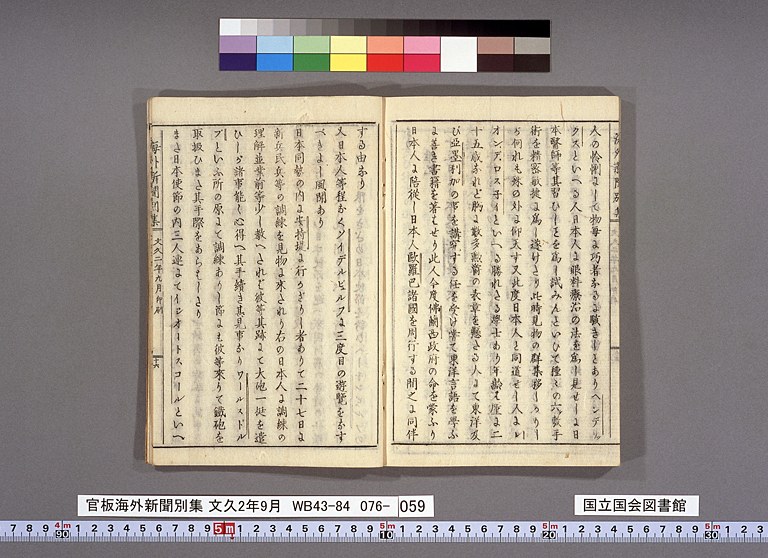 人の怜悧にして物毎に巧者なるに驚きしとありヘンデル
クスといへる人日本人に眼科療治の法を為し見せしに日
本醫師等其習ひしことを為し試みんといひて種々の六数手
術を精密敏捷に為し遂げたり此時見物の群集移しかりし
が何れも殊の外に仰天す又此度日本人と同道せし人はレ
オンデロスネイといへる勝れたる學士あり年齢は僅に二
十五歳なれど胸に数多勲賞の表章を懸たる人にて東洋及
び亞墨利加の事を講究する任を受け嘗て東洋言語を學ぶ
に善き書籍を著せり此人今度佛蘭西政府の命を蒙ふり
日本人に陪從し日本人歐羅巴諸國を周行する間之に同伴
する由なり
又日本人等程なくウイデルビルフに三度目の遊覧をなす
べきよし風聞あり
日本同勢の内に安特堤に行かざりし者ありて二十七日に
新兵民兵等の調練を見物に來されり右の日本人に調練の
理解並業前等少し教へされど彼等其跡にて大砲一挺を遣
ひしが諸事能く心得へ其手續き甚見事なりワールスドル
プといふ所の原にて調練ありし節にも彼等來りて鐵砲を
取扱ひまた其手際をあらはしたり
また日本使節の内三人連にてインオートスコールといへ
海外新聞別集 文久二年九月 印刷 十六
官板海外新聞別集 文久2年9月 WB43-84 076-059
国立国会図書館